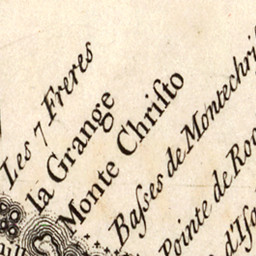 Les 7 Freres
la Grange
Monte Chriſto
Baſses de Montechri
Pointe de Roc
d'Iſa